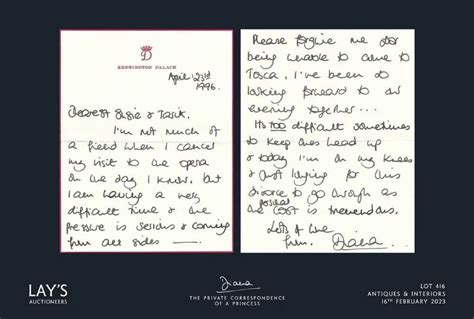 D
KENSINGTON PALACE
April 23rd
1996.
Dearest Susie & Tarek.
I'm not much of
a friend when I cancel
my visit to the opera
on the day I know, but
I am having a very
difficult time & the
pressure is serious & coming
from all sides —
Please forgive me for
being unable to come to
Tosca, I've been so
looking forward to our
evening together...
It's too difficult sometimes
to keep ones head up
& today I'm on my knees
& just longing for this
divorce to go through as
the possible cost is tremendous.
Lots of love
from, Diana.
LAY'S
AUCTIONEERS
Diana
THE PRIVATE CORRESPONDENCE
OF A PRINCESS
LOT 416
ANTIQUES & INTERIORS
16TH FEBRUARY 2023